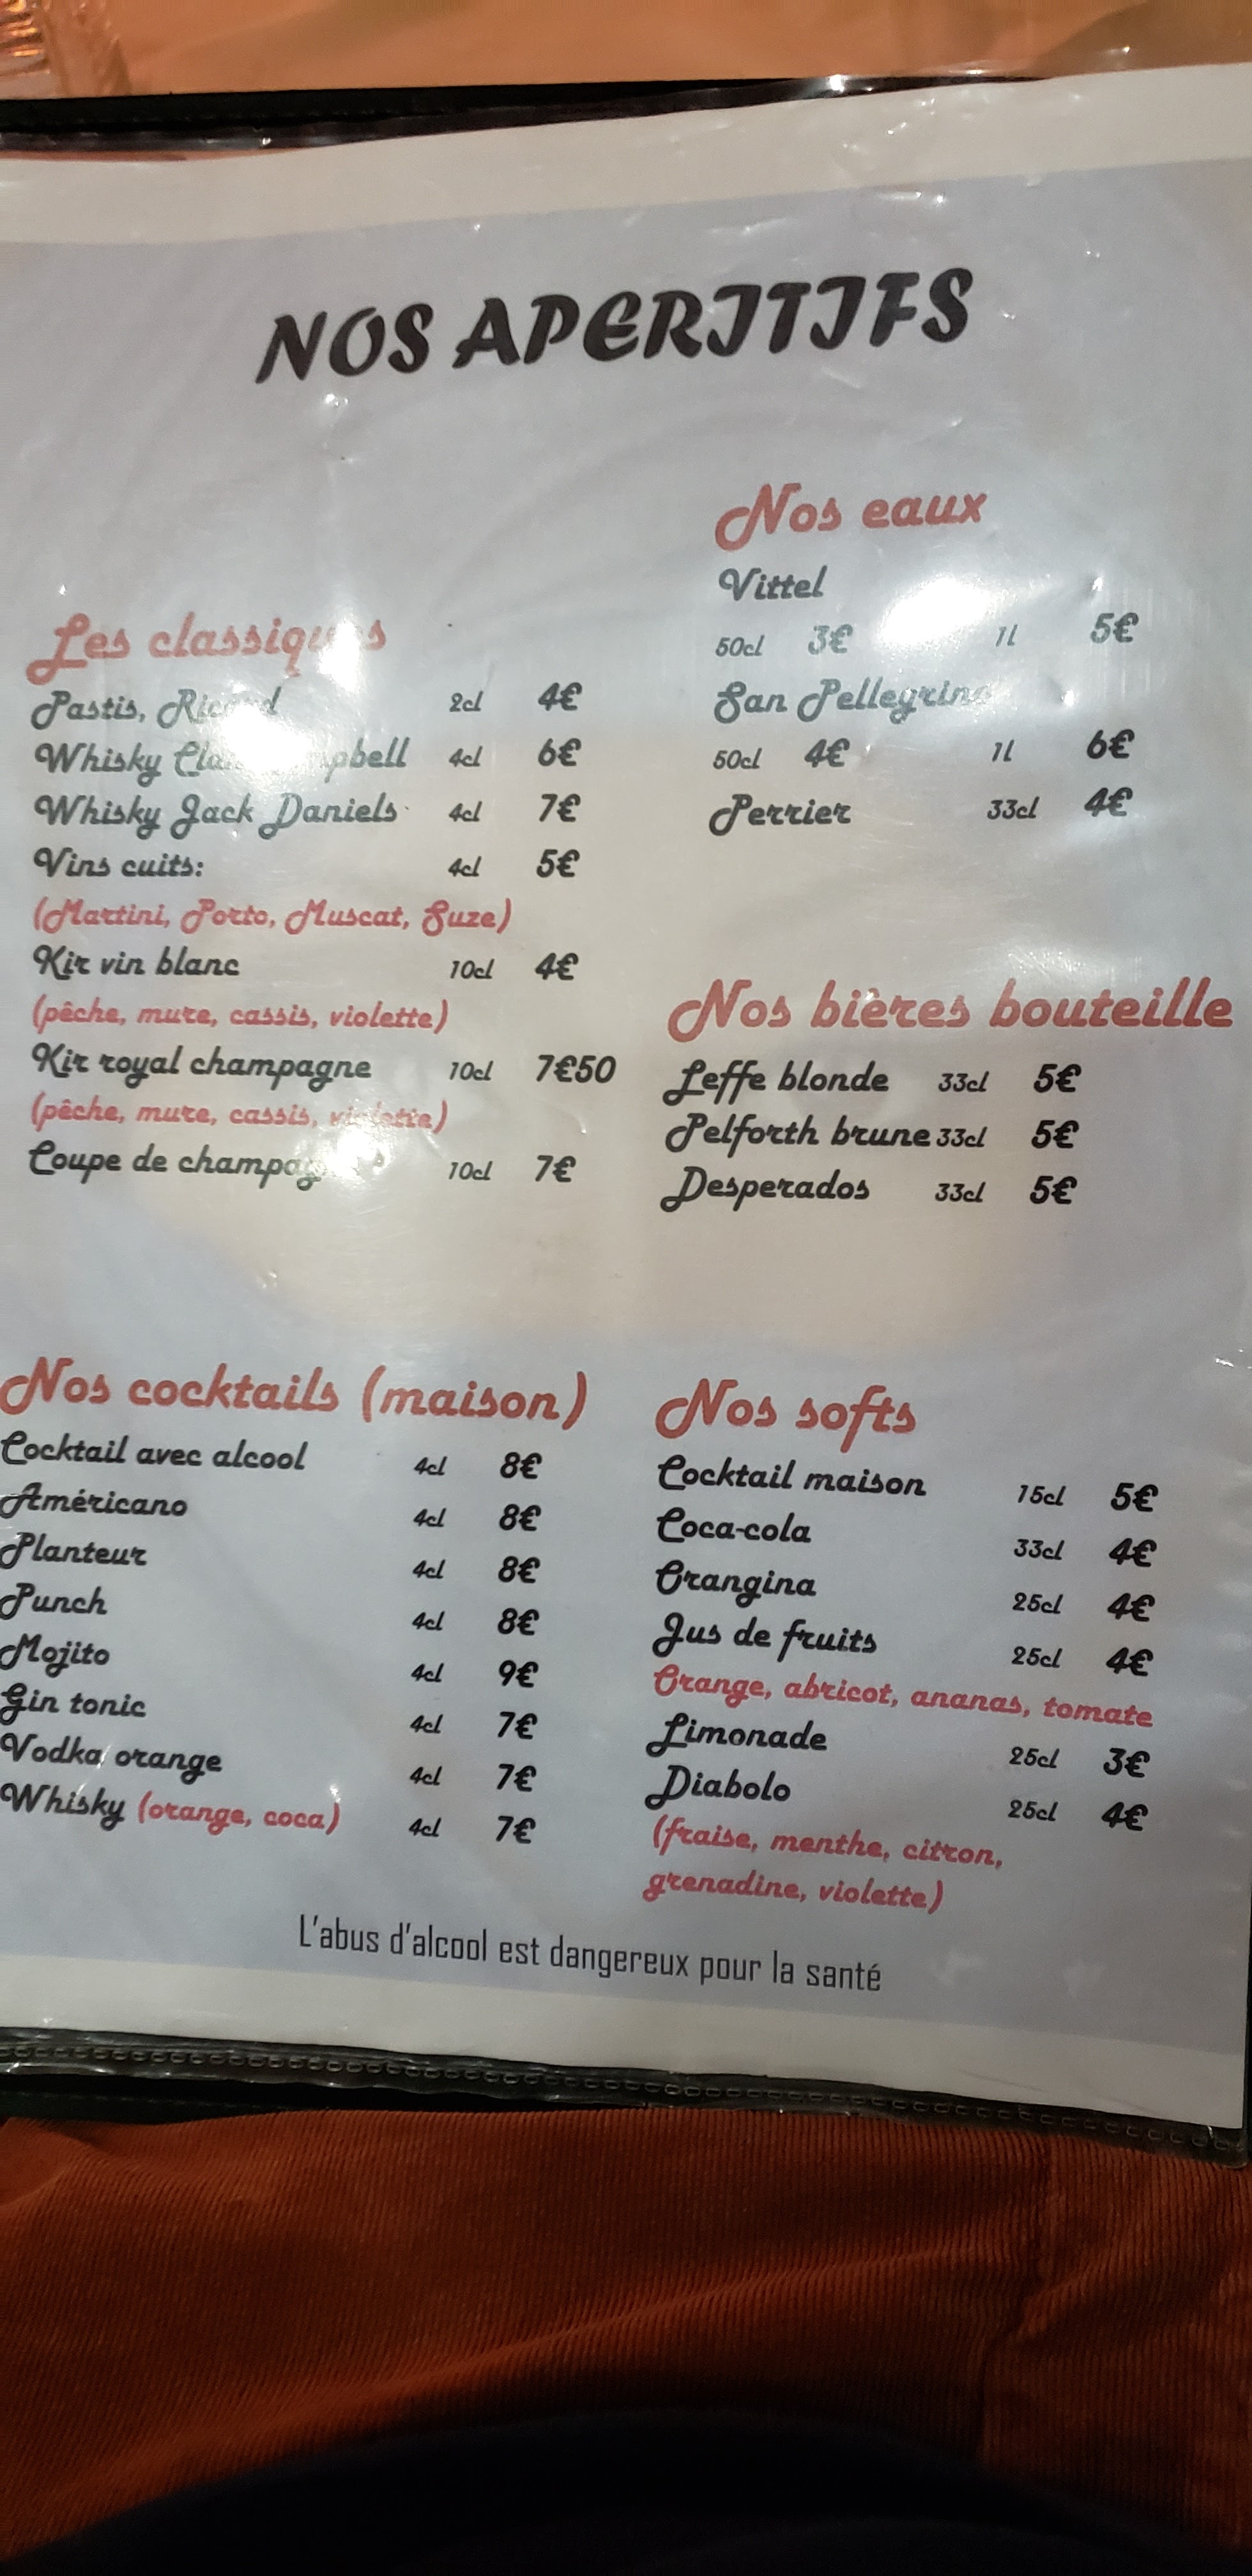 NOS APERITIFS
Les classiques
Pastis, Ricard 2cl 4€
Whisky Clan Campbell 4cl 6€
Whisky Jack Daniels 4cl 7€
Vins cuits: 4cl 5€
(Martini, Porto, Muscat, Suze)
Kir vin blanc 10cl 4€
(pêche, mure, cassis, violette)
Kir royal champagne 10cl 7€50
(pêche, mure, cassis, violette)
Coupe de champagne 10cl 7€
Nos eaux
Vittel
50cl 3€ 1l 5€
San Pellegrino
50cl 4€ 1l 6€
Perrier 33cl 4€
Nos bières bouteille
Leffe blonde 33cl 5€
Pelforth brune 33cl 5€
Desperados 33cl 5€
Nos cocktails (maison)
Cocktail avec alcool 4cl 8€
Américano 4cl 8€
Planteur 4cl 8€
Punch 4cl 8€
Mojito 4cl 9€
Gin tonic 4cl 7€
Vodka orange 4cl 7€
Whisky (orange, coca) 4cl 7€
Nos softs
Cocktail maison 15cl 5€
Coca-cola 33cl 4€
Orangina 25cl 4€
Jus de fruits 25cl 4€
Orange, abricot, ananas, tomate
Limonade 25cl 3€
Diabolo 25cl 4€
(fraise, menthe, citron,
grenadine, violette)
L'abus d'alcool est dangereux pour la santé